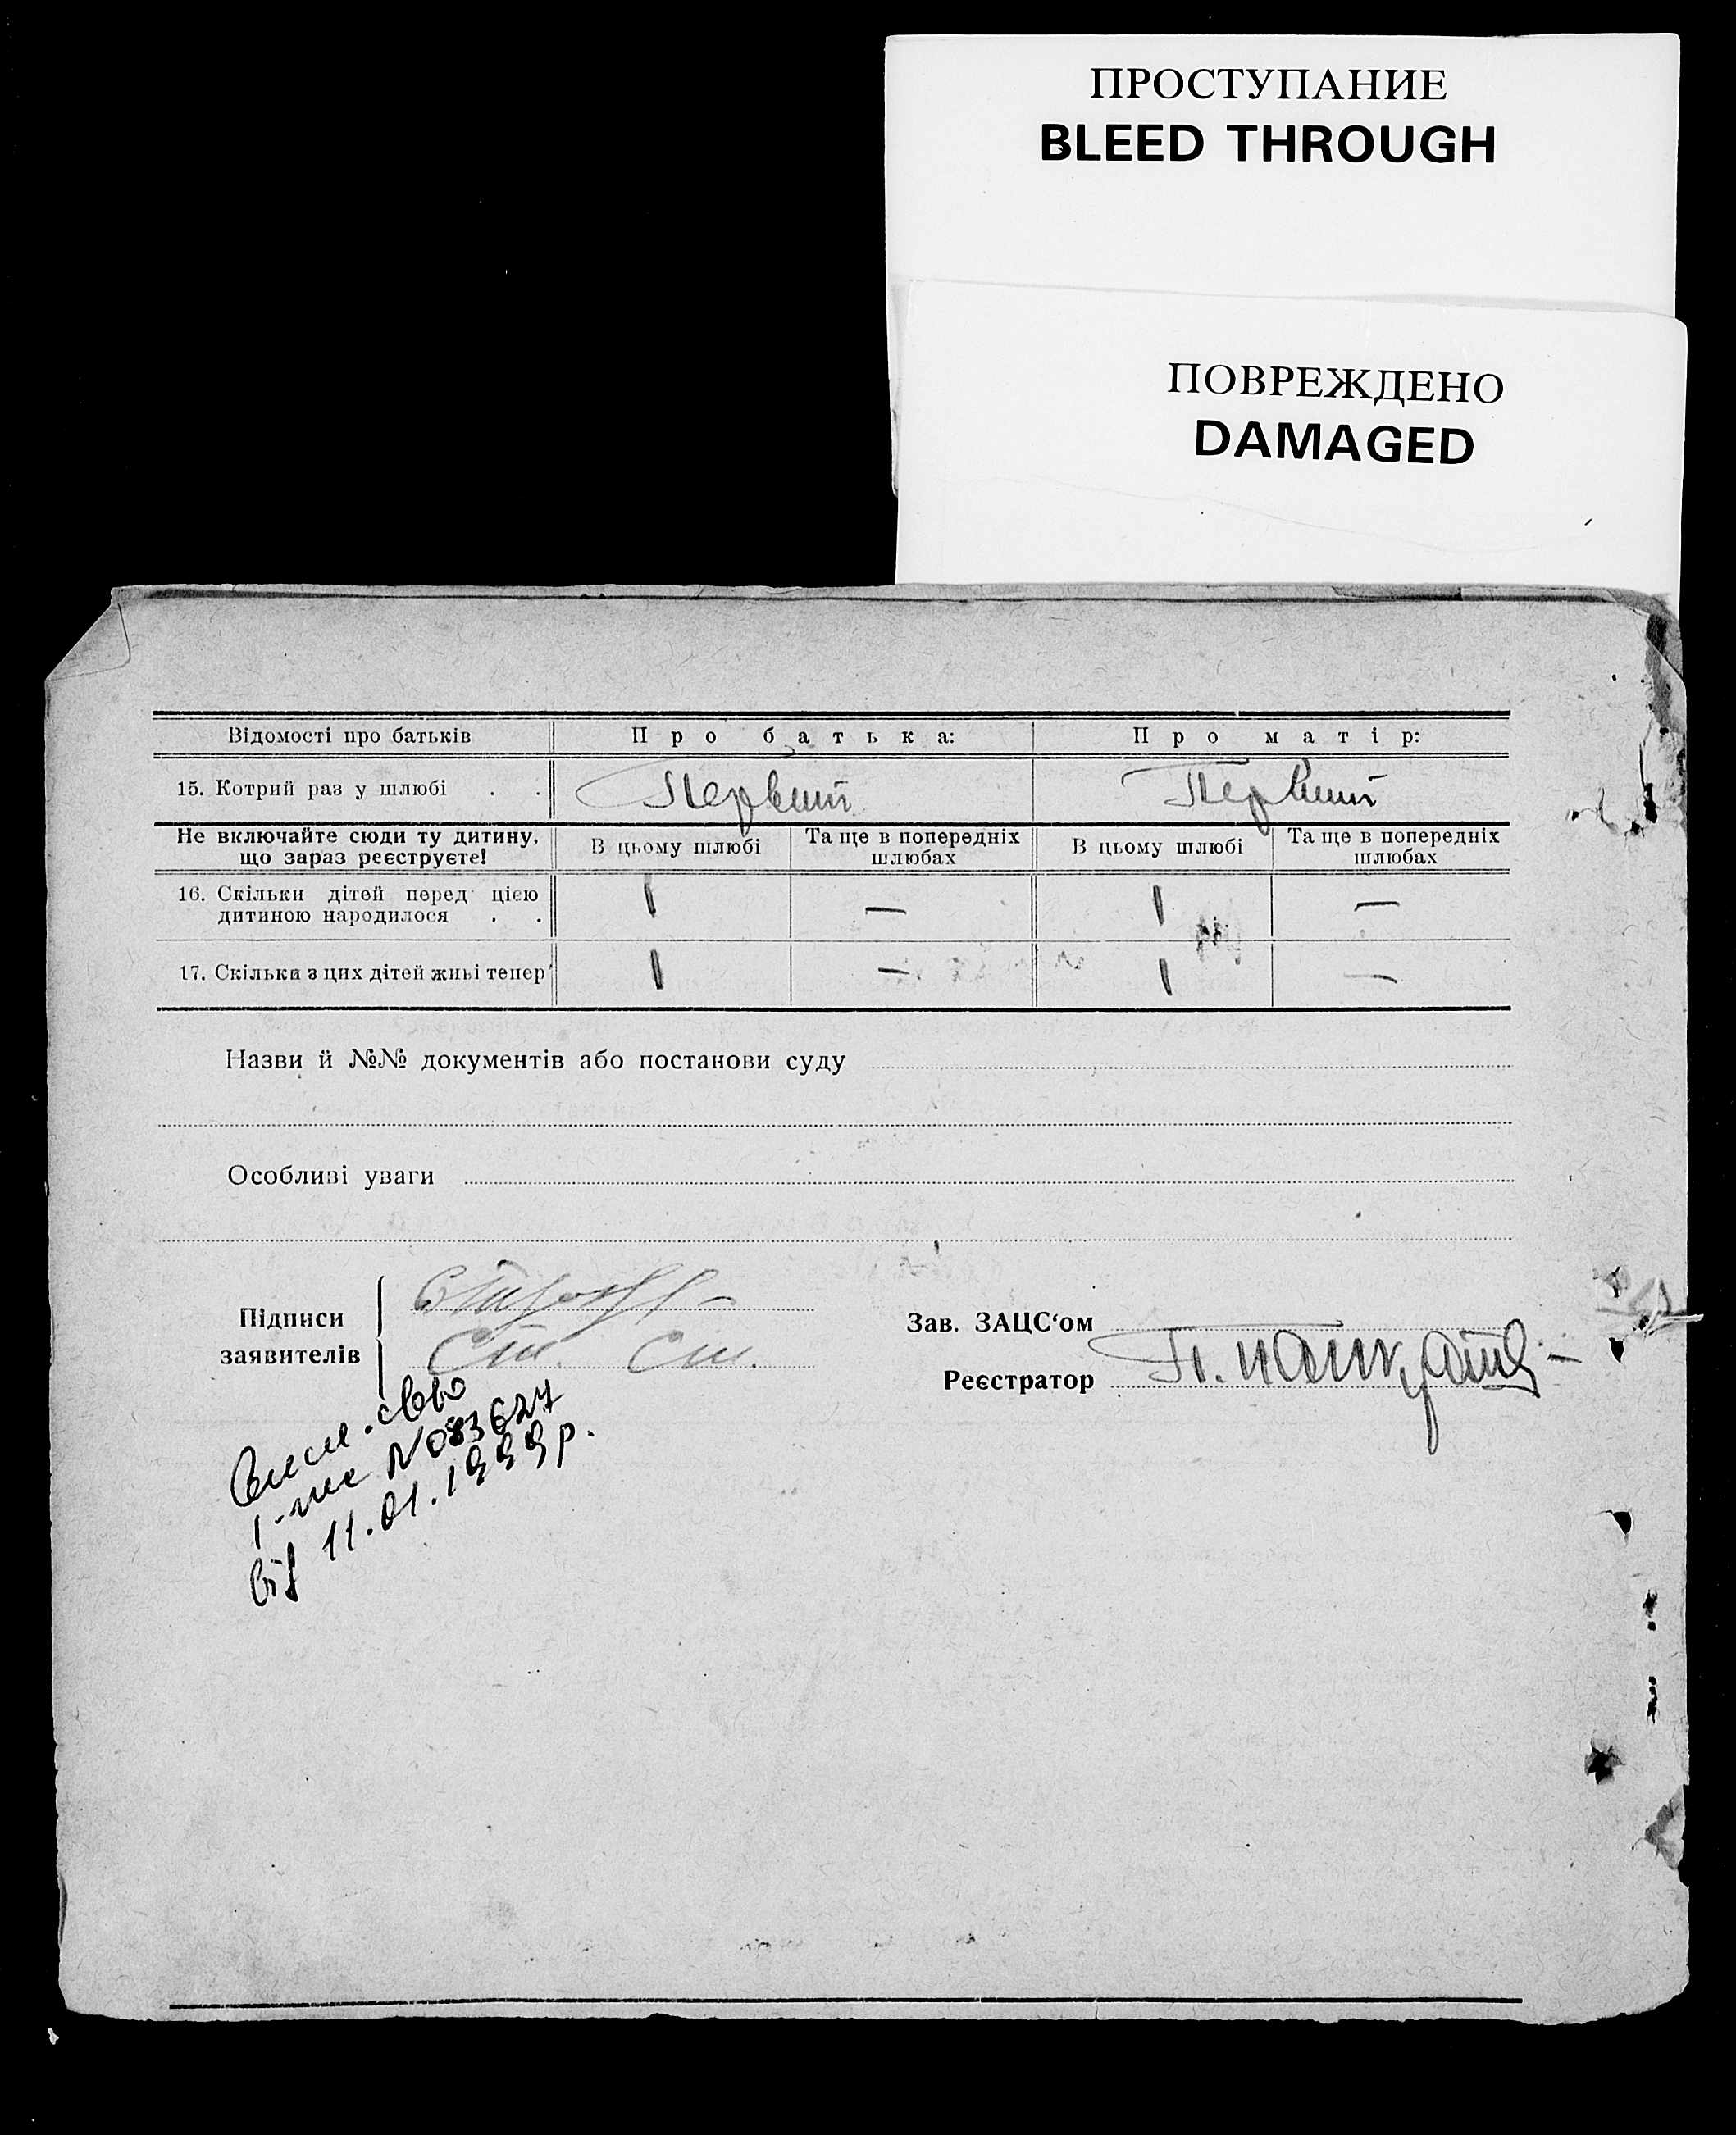 ПРОСТУПАНИЕ
BLEED THROUGH
ПОВРЕЖДЕНО
DAMAGED
Відомості про батьків Про батька: Про матір:
15. Котрий раз у шлюбі . . Первий Первий
Не включайте сюди ту дитину, що зараз реєструєте! В цьому шлюбі Та ще в попередніх шлюбах В цьому шлюбі Та ще в попередніх шлюбах
16. Скільки дітей перед цією
дитиною народилося . . 1 — 1 —
17. Скільки з цих дітей живі тепер 1 — 1 —
Назви й №№ документів або постанови суду
Особливі уваги
Підписи
заявителів
Зав. ЗАЦС‘ом
Реєстратор
N 083627
від 11.01.1999р.